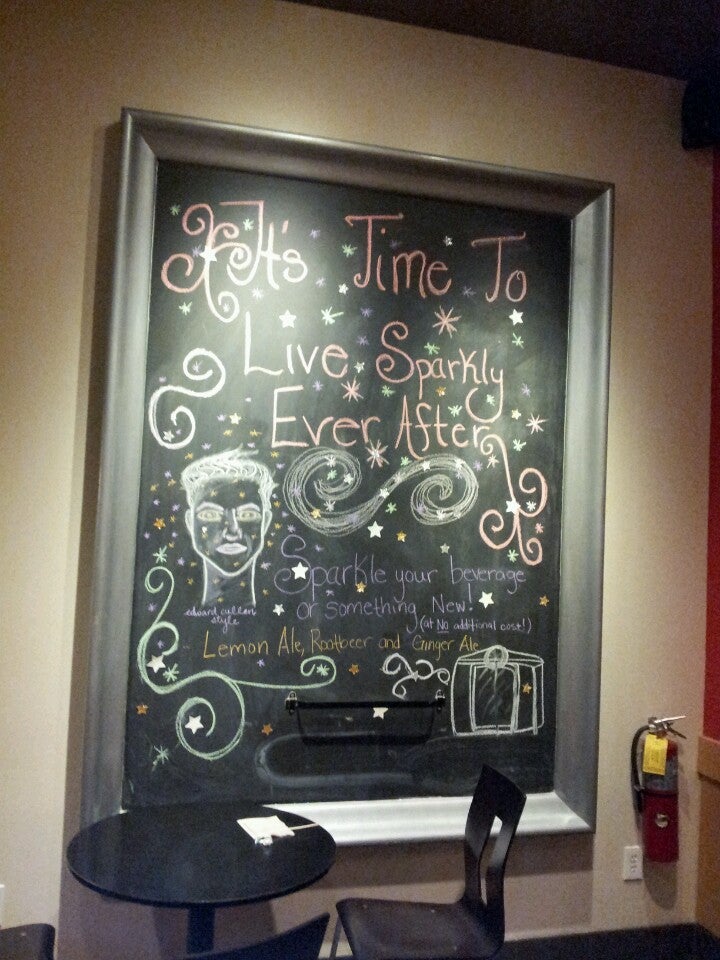 It's Time To
Live Sparkly
Ever After
Sparkle your beverage
or something New!
(at NO additional cost!)
edward cullen
style
Lemon Ale, Rootbeer and Ginger Ale